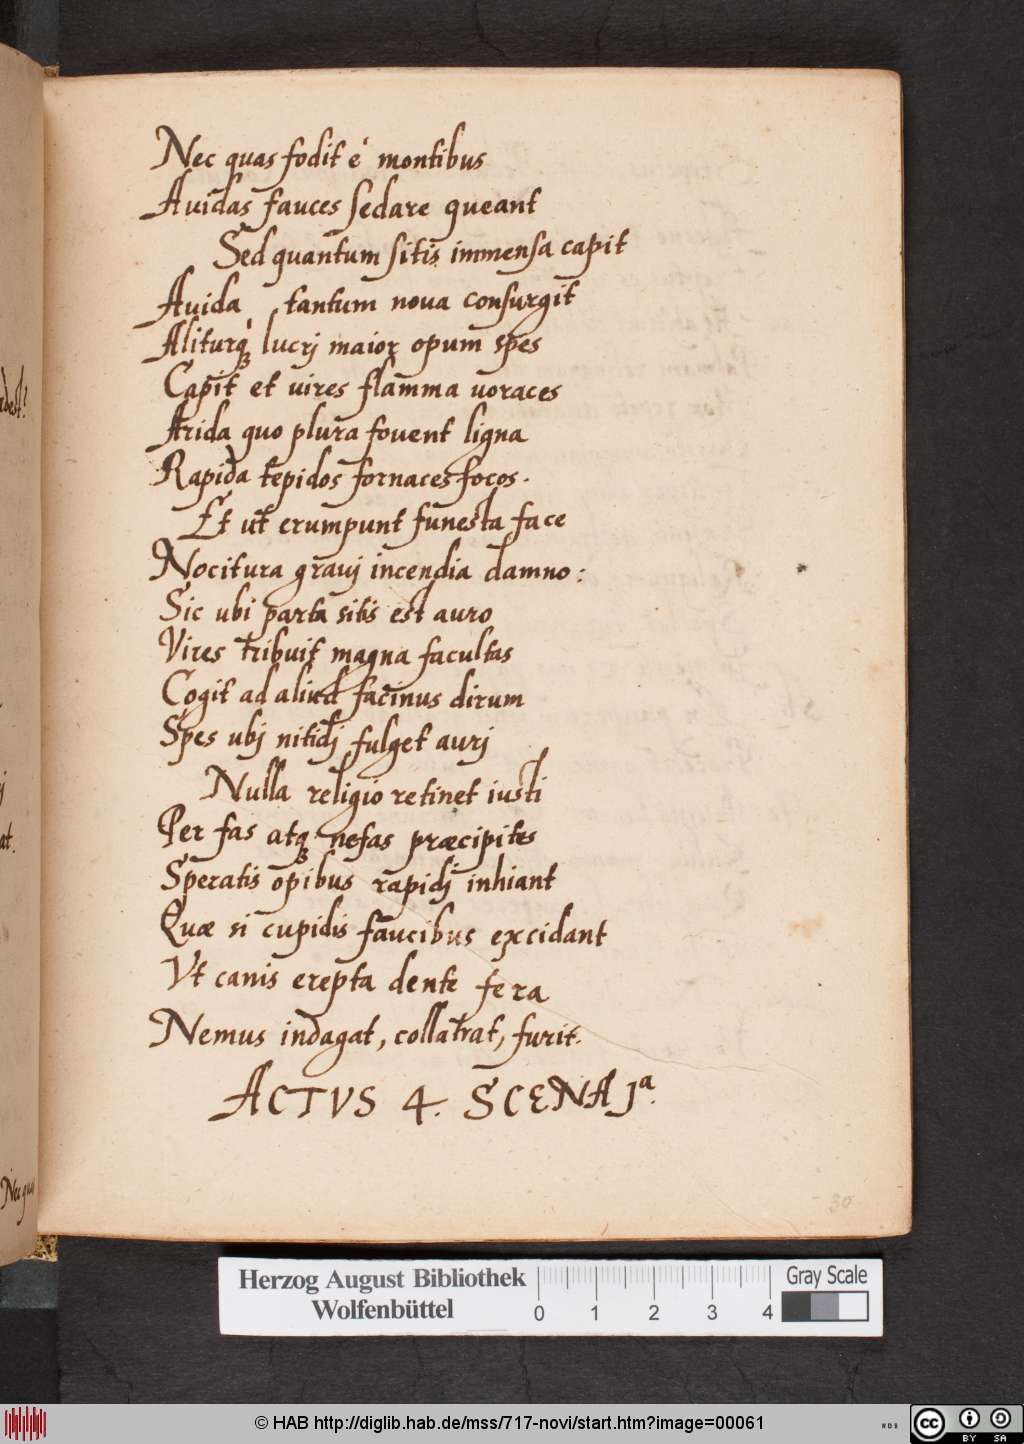 adest?
at.
Nec qua
Nec quas fodit è montibus
Auidas fauces sedare queant
Sed quantum sitis immensa capit
Auida tantum noua consurgit
Aliturq́ lucrj maior opum spes
Capit et uires flamma uoraces
Arida quo plura fouent ligna
Rapida tepidos fornaces focos.
Et ut erumpunt funesta face
Nocitura grauj incendia damno:
Sic ubi parta sitis est auro
Vires tribuit magna facultas
Cogit ad aliud facinus dirum
Spes ubj nitidj fulget aurj
Nulla religio retinet iusti
Per fas atq nefas præcipites
Speratis opibus rapidj inhiant
Quæ si cupidis faucibus excidant
Vt canis erepta dente fera
Nemus indagat, collatrat, furit.
ACTVS 4. SCENA 1ª.
30
Herzog August Bibliothek
Wolfenbüttel
0 1 2 3 4
Gray Scale
© HAB http://diglib.hab.de/mss/717-novi/start.htm?image=00061
WDB
cc BY SA